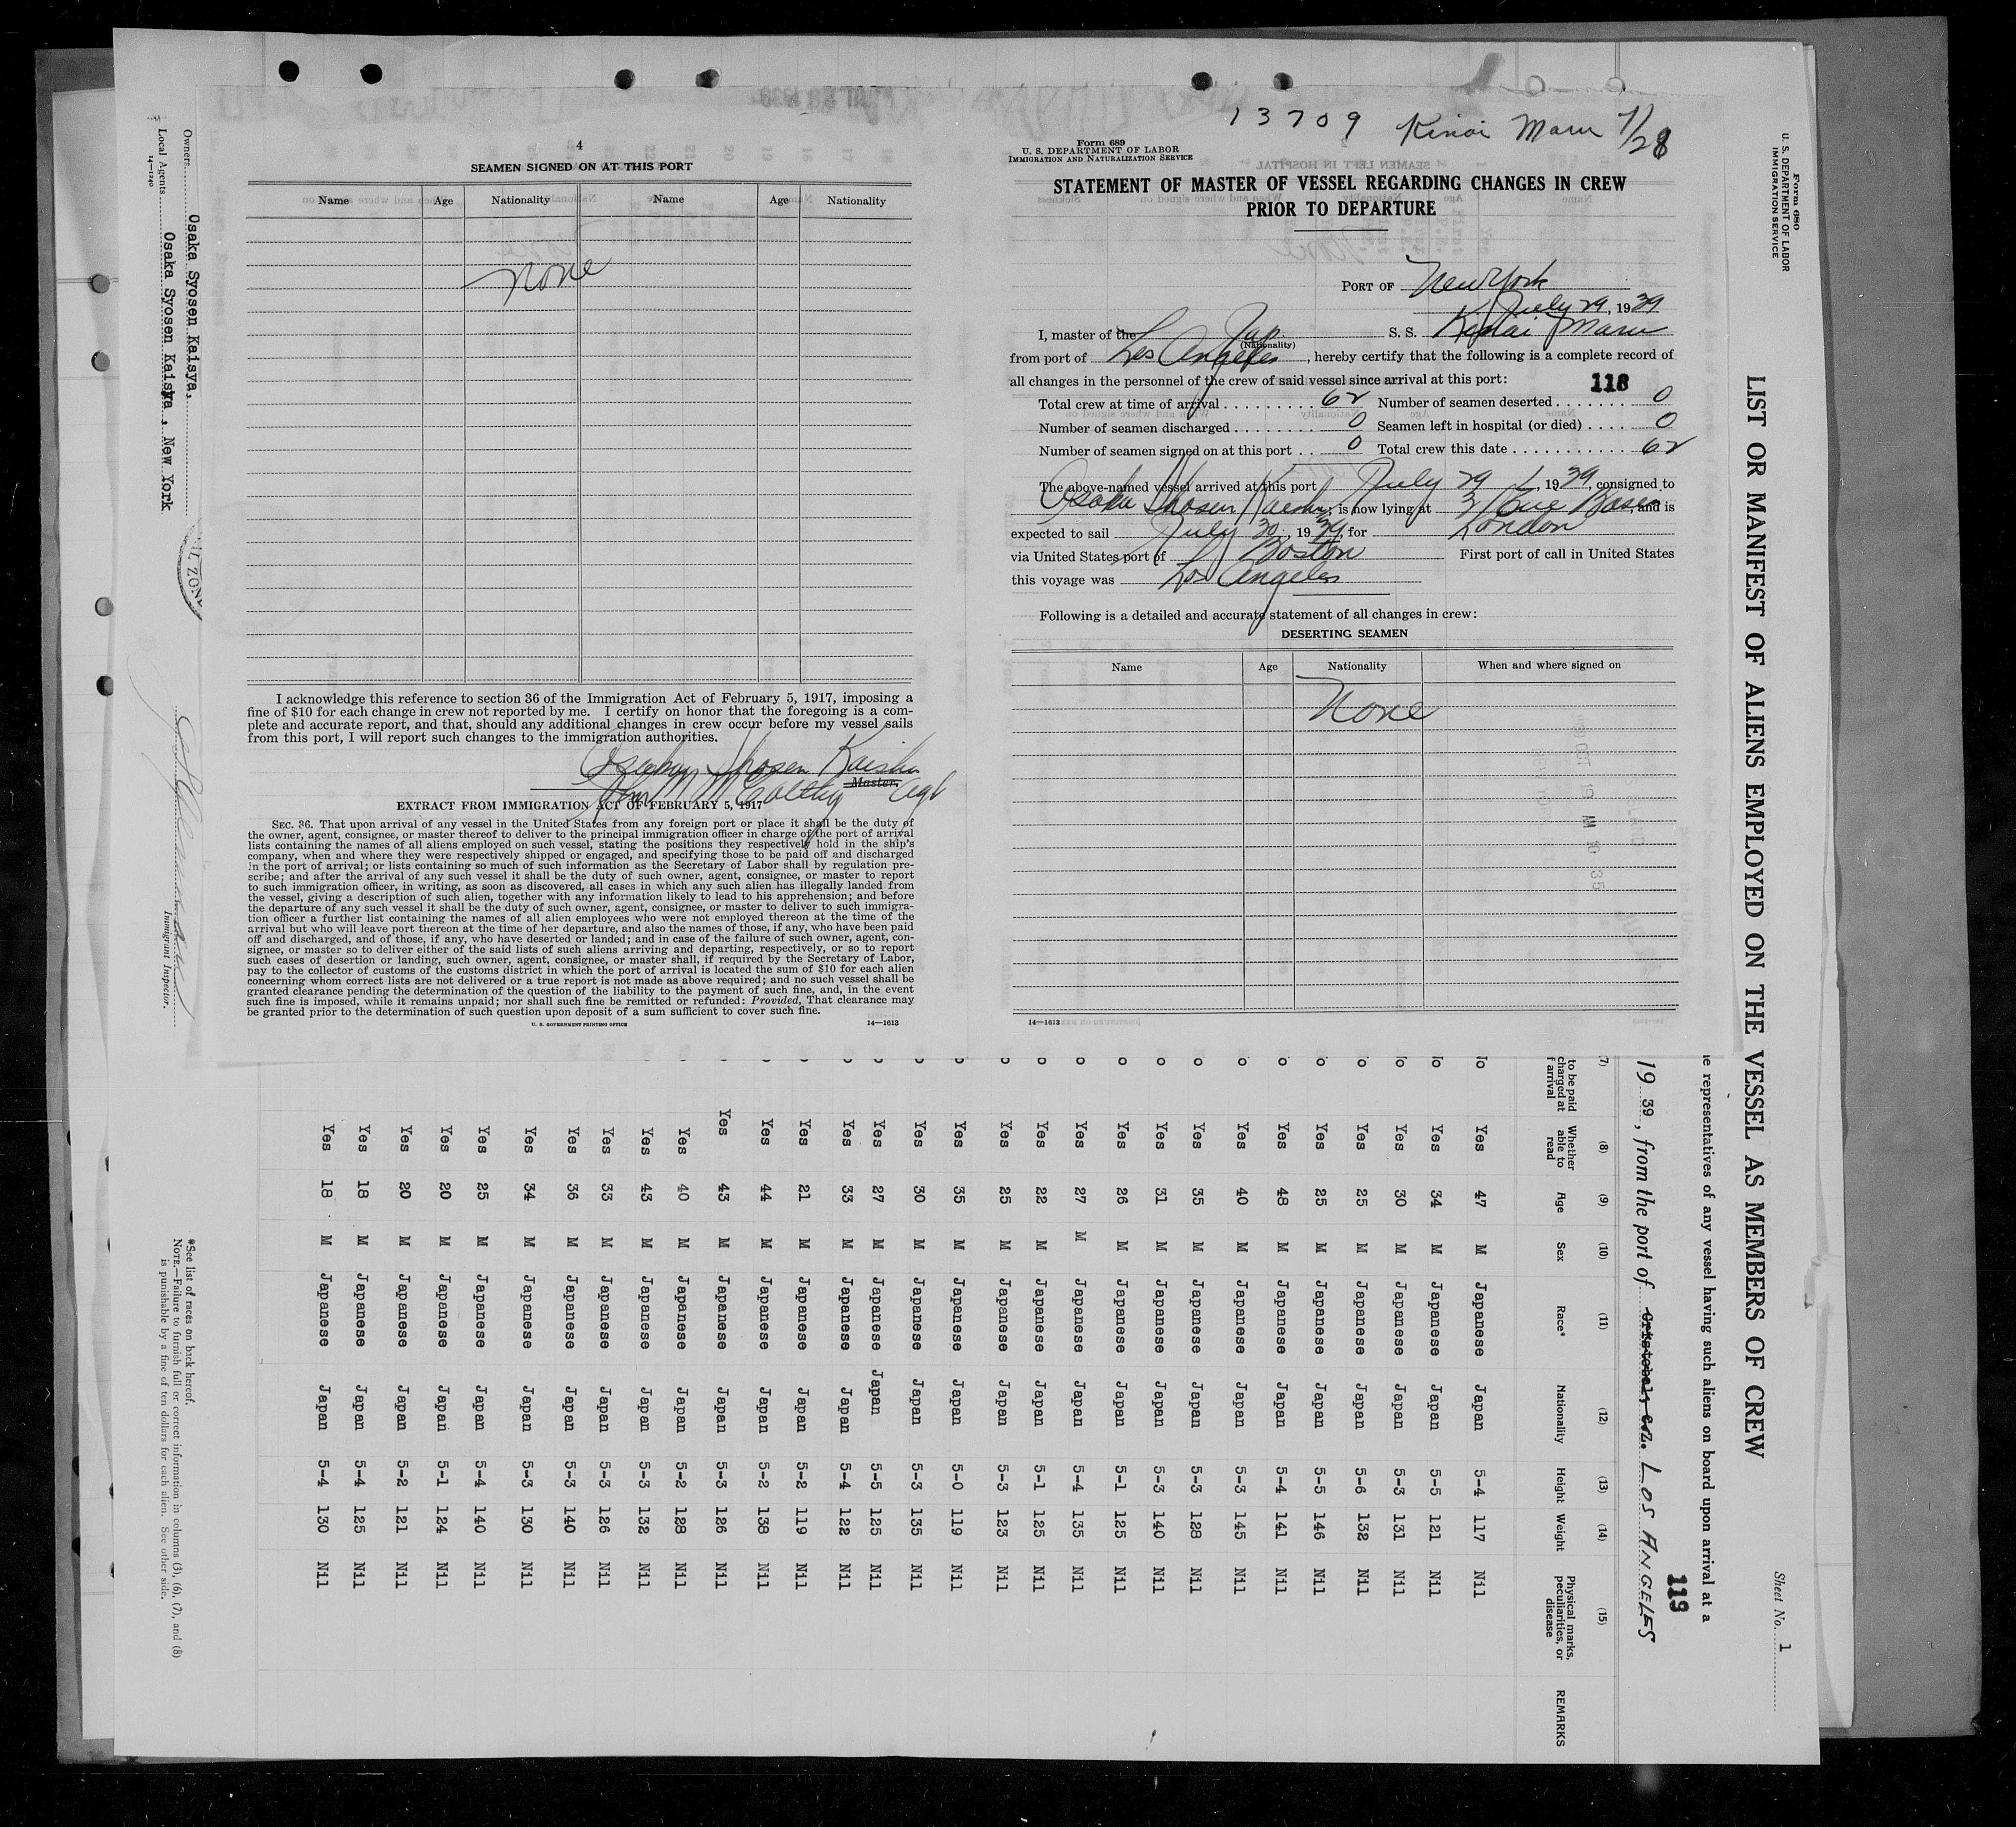 13709 Kinai Maru 7/28
4
SEAMEN SIGNED ON AT THIS PORT
Name Age Nationality Name Age Nationality
None
I acknowledge this reference to section 36 of the Immigration Act of February 5, 1917, imposing a
fine of $10 for each change in crew not reported by me. I certify on honor that the foregoing is a com-
plete and accurate report, and that, should any additional changes in crew occur before my vessel sails
from this port, I will report such changes to the immigration authorities.
Shosen Kaisha
Master. Agt
EXTRACT FROM IMMIGRATION ACT OF FEBRUARY 5, 1917
SEC. 36. That upon arrival of any vessel in the United States from any foreign port or place it shall be the duty of
the owner, agent, consignee, or master thereof to deliver to the principal immigration officer in charge of the port of arrival
lists containing the names of all aliens employed on such vessel, stating the positions they respectively hold in the ship's
company, when and where they were respectively shipped or engaged, and specifying those to be paid off and discharged
in the port of arrival; or lists containing so much of such information as the Secretary of Labor shall by regulation pre-
scribe; and after the arrival of any such vessel it shall be the duty of such owner, agent, consignee, or master to report
to such immigration officer, in writing, as soon as discovered, all cases in which any such alien has illegally landed from
the vessel, giving a description of such alien, together with any information likely to lead to his apprehension; and before
the departure of any such vessel it shall be the duty of such owner, agent, consignee, or master to deliver to such immigra-
tion officer a further list containing the names of all alien employees who were not employed thereon at the time of the
arrival but who will leave port thereon at the time of her departure, and also the names of those, if any, who have been paid
off and discharged, and of those, if any, who have deserted or landed; and in case of the failure of such owner, agent, con-
signee, or master so to deliver either of the said lists of such aliens arriving and departing, respectively, or so to report
such cases of desertion or landing, such owner, agent, consignee, or master shall, if required by the Secretary of Labor,
pay to the collector of customs of the customs district in which the port of arrival is located the sum of $10 for each alien
concerning whom correct lists are not delivered or a true report is not made as above required; and no such vessel shall be
granted clearance pending the determination of the question of the liability to the payment of such fine, and, in the event
such fine is imposed, while it remains unpaid; nor shall such fine be remitted or refunded: Provided, That clearance may
be granted prior to the determination of such question upon deposit of a sum sufficient to cover such fine.
U. S. GOVERNMENT PRINTING OFFICE 14—1613
Form 689
U. S. DEPARTMENT OF LABOR
IMMIGRATION AND NATURALIZATION SERVICE
STATEMENT OF MASTER OF VESSEL REGARDING CHANGES IN CREW
PRIOR TO DEPARTURE
PORT OF New York
July 29, 1939
I, master of the Jap. S. S. Kinai Maru
(Nationality)
from port of Los Angeles, hereby certify that the following is a complete record of
all changes in the personnel of the crew of said vessel since arrival at this port: 118
Total crew at time of arrival 62 Number of seamen deserted 0
Number of seamen discharged 0 Seamen left in hospital (or died) 0
Number of seamen signed on at this port 0 Total crew this date 62
The above-named vessel arrived at this port July 29, 1939, consigned to
Osaka Shosen Kaisha; is now lying at 3 Erie Basin, and is
expected to sail July 30, 1939, for London
via United States port of Boston First port of call in United States
this voyage was Los Angeles
Following is a detailed and accurate statement of all changes in crew:
DESERTING SEAMEN
Name Age Nationality When and where signed on
None
14—1613
Form 680
U. S. DEPARTMENT OF LABOR
IMMIGRATION SERVICE
Sheet No. 1
LIST OR MANIFEST OF ALIENS EMPLOYED ON THE VESSEL AS MEMBERS OF CREW
representatives of any vessel having such aliens on board upon arrival at a
119
1939, from the port of Cristobal, c.z. LOS ANGELES
(8) (9) (10) (11) (12) (13) (14) (15)
to be paid charged at arrival Whether able to read Age Sex Race* Nationality Height Weight Physical marks, peculiarities, or disease REMARKS
Yes 47 M Japanese Japan 5-4 117 Nil
Yes 34 M Japanese Japan 5-5 121 Nil
Yes 30 M Japanese Japan 5-3 131 Nil
Yes 25 M Japanese Japan 5-6 132 Nil
Yes 25 M Japanese Japan 5-5 146 Nil
Yes 48 M Japanese Japan 5-4 141 Nil
Yes 40 M Japanese Japan 5-3 145 Nil
Yes 35 M Japanese Japan 5-3 128 Nil
Yes 31 M Japanese Japan 5-3 140 Nil
Yes 26 M Japanese Japan 5-1 125 Nil
Yes 27 M Japanese Japan 5-4 135 Nil
Yes 22 M Japanese Japan 5-1 125 Nil
Yes 25 M Japanese Japan 5-3 123 Nil
Yes 35 M Japanese Japan 5-0 119 Nil
Yes 30 M Japanese Japan 5-3 135 Nil
Yes 27 M Japanese Japan 5-5 125 Nil
Yes 33 M Japanese Japan 5-4 122 Nil
Yes 21 M Japanese Japan 5-2 119 Nil
Yes 44 M Japanese Japan 5-2 138 Nil
Yes 43 M Japanese Japan 5-3 126 Nil
Yes 40 M Japanese Japan 5-2 128 Nil
Yes 43 M Japanese Japan 5-3 132 Nil
Yes 33 M Japanese Japan 5-3 126 Nil
Yes 36 M Japanese Japan 5-3 140 Nil
Yes 34 M Japanese Japan 5-3 130 Nil
Yes 25 M Japanese Japan 5-4 140 Nil
Yes 20 M Japanese Japan 5-1 124 Nil
Yes 20 M Japanese Japan 5-2 121 Nil
Yes 18 M Japanese Japan 5-4 125 Nil
Yes 18 M Japanese Japan 5-4 130 Nil
Owners Osaka Syosen Kaisya,
Local Agents Osaka Syosen Kaisya, New York
14—1240
Immigrant Inspector.
*See list of races on back hereof.
NOTE.—Failure to furnish full or correct information in columns (3), (6), (7), and (8)
is punishable by a fine of ten dollars for each alien. See other side.